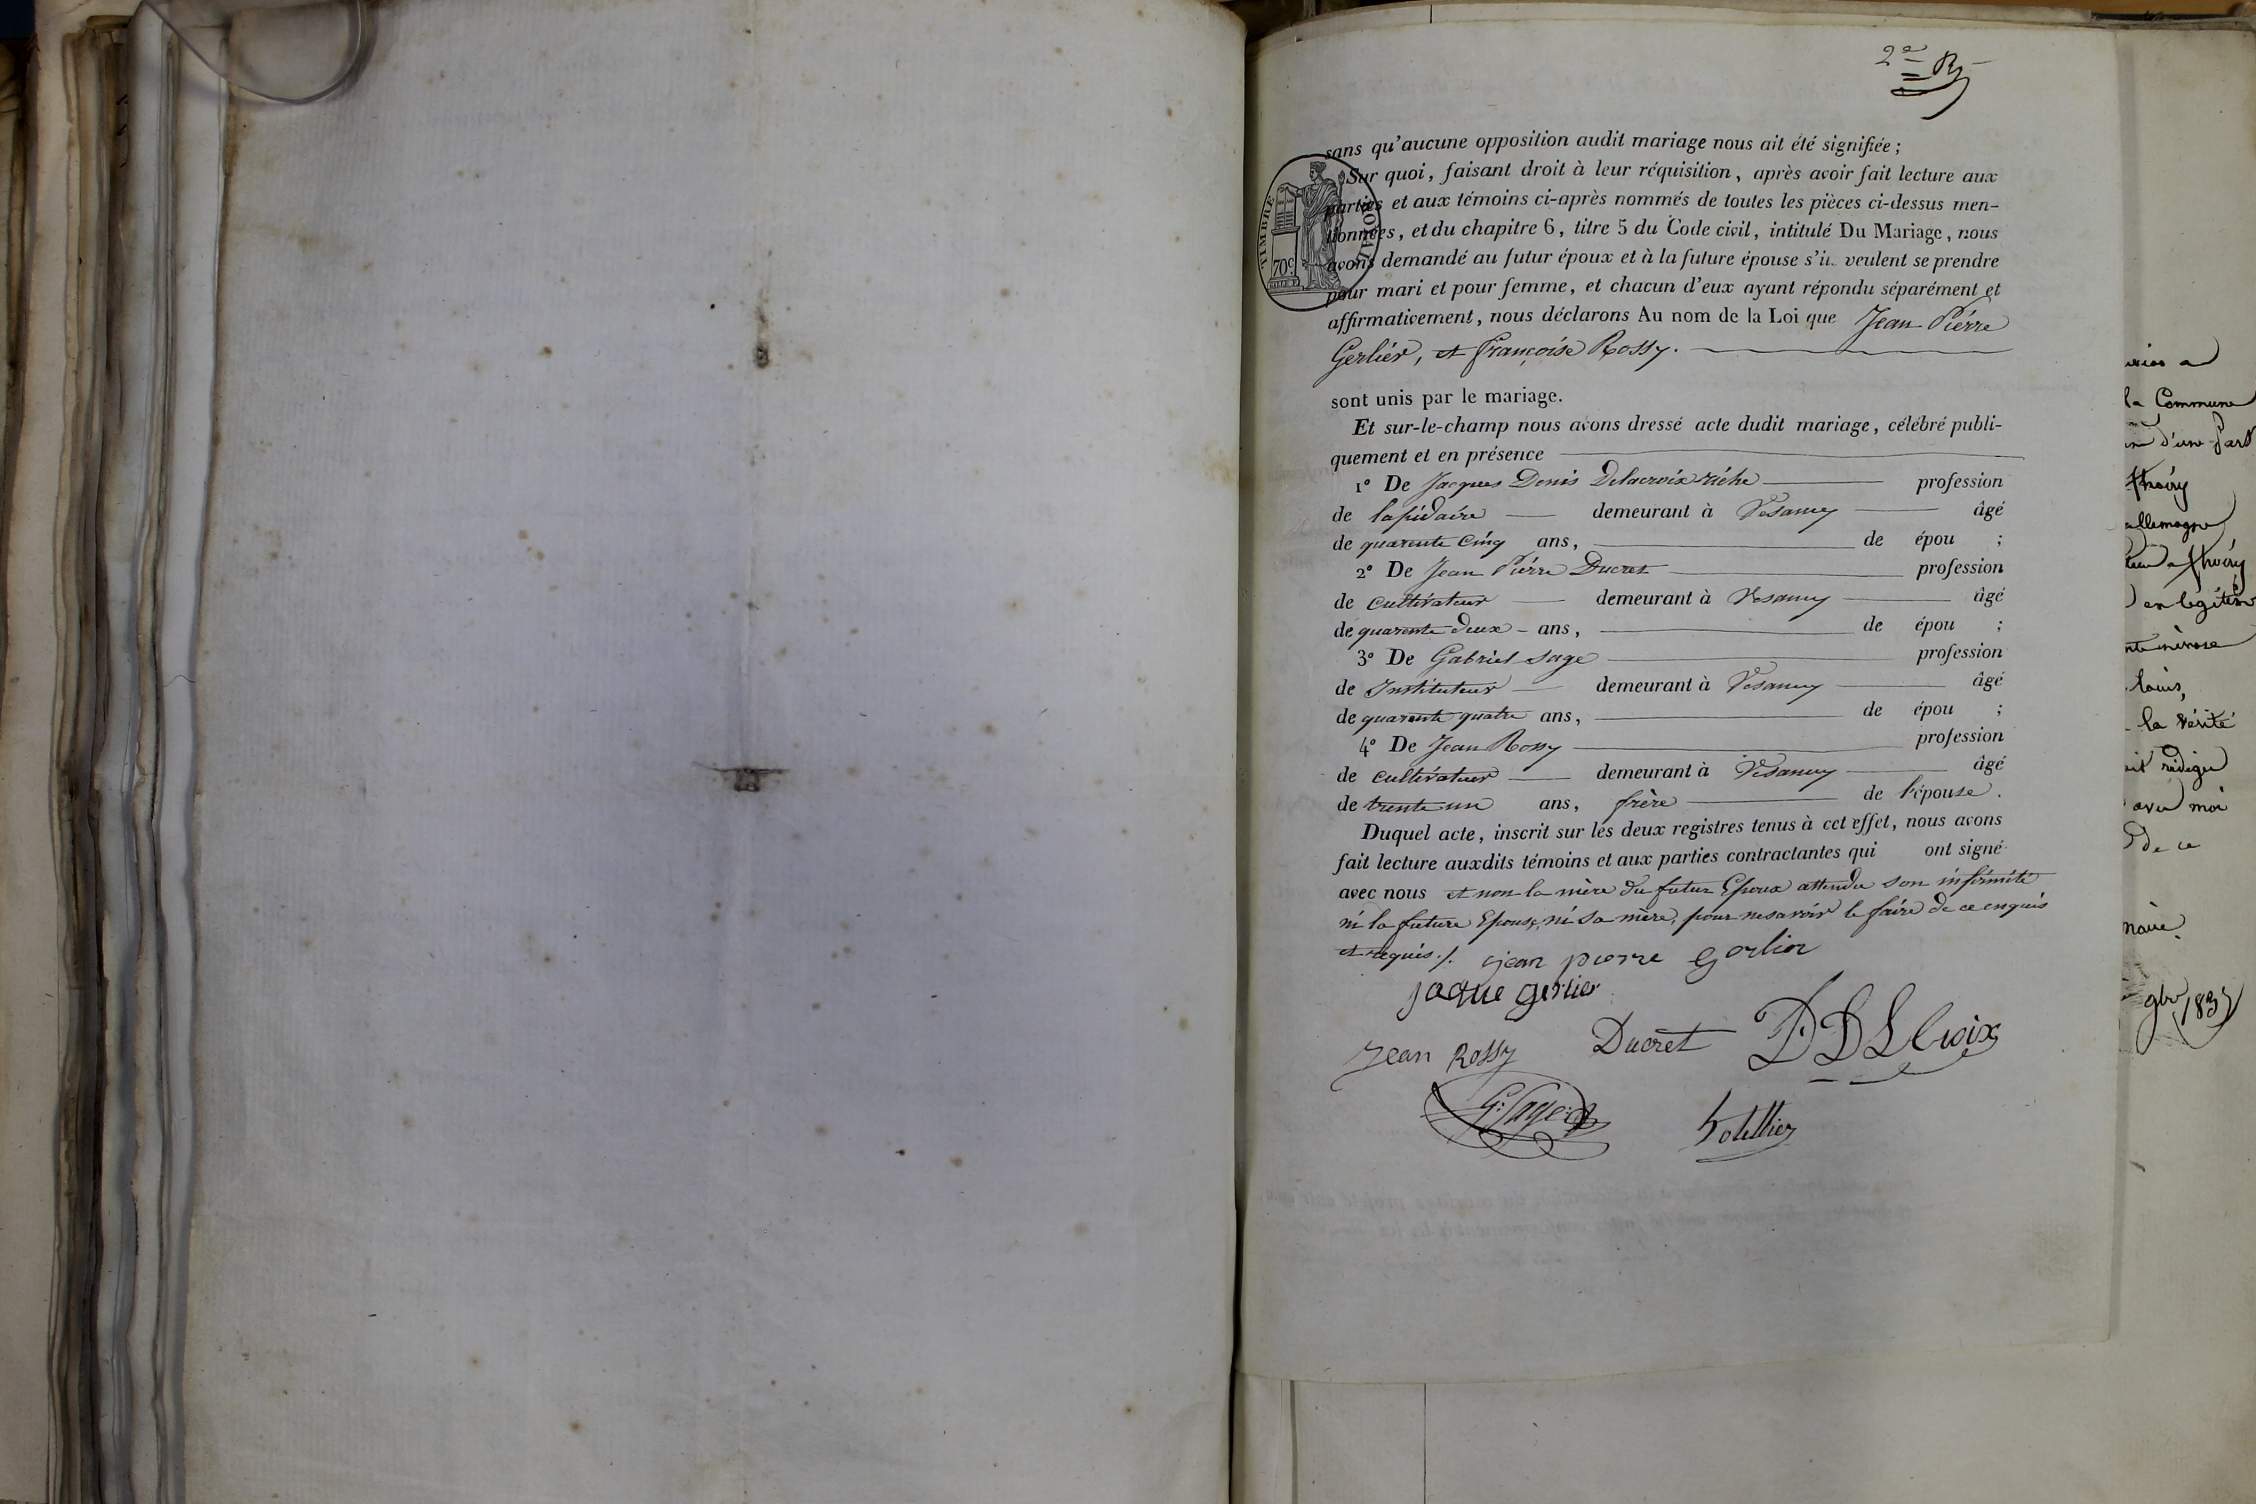 2e
sans qu'aucune opposition audit mariage nous ait été signifiée ;
Sur quoi, faisant droit à leur réquisition, après avoir fait lecture aux
parties et aux témoins ci-après nommés de toutes les pièces ci-dessus men-
tionnées, et du chapitre 6, titre 5 du Code civil, intitulé Du Mariage, nous
avons demandé au futur époux et à la future épouse s'il veulent se prendre
pour mari et pour femme, et chacun d'eux ayant répondu séparément et
affirmativement, nous déclarons Au nom de la Loi que Jean Piérre
Gerliér, et françoise Rossy.
sont unis par le mariage.
Et sur-le-champ nous avons dressé acte dudit mariage, célébré publi-
quement et en présence
1° De Jacques Denis Delacroix riche profession
de lapidaire demeurant à Vesancy âgé
de quarente cinq ans, de épou ;
2° De Jean Piérre Ducret profession
de cultivateur demeurant à Vesancy âgé
de quarente deux ans, de épou ;
3° De Gabriel Sage profession
de Instituteur demeurant à Vesancy âgé
de quarente quatre ans, de épou ;
4° De Jean Rossy profession
de cultivateur demeurant à Vesancy âgé
de trente un ans, frère de l'épouse.
Duquel acte, inscrit sur les deux registres tenus à cet effet, nous avons
fait lecture auxdits témoins et aux parties contractantes qui ont signé
avec nous et non la mère du futur Epoux attendu son infirmité
ni la future Epouse, ni sa mère, pour ne savoir le faire de ce enquis
et requis ./. jean pierre gerlier
jaque gerlier
Jean Rossy Ducret DDLCroix
G: Sage
TIMBRE ROYAL
70c
la Commune
d'une part
thoiry
allemogne
thoiry
en légitime
la vérité
rédigé
avec moi
de ce
9bre 1837